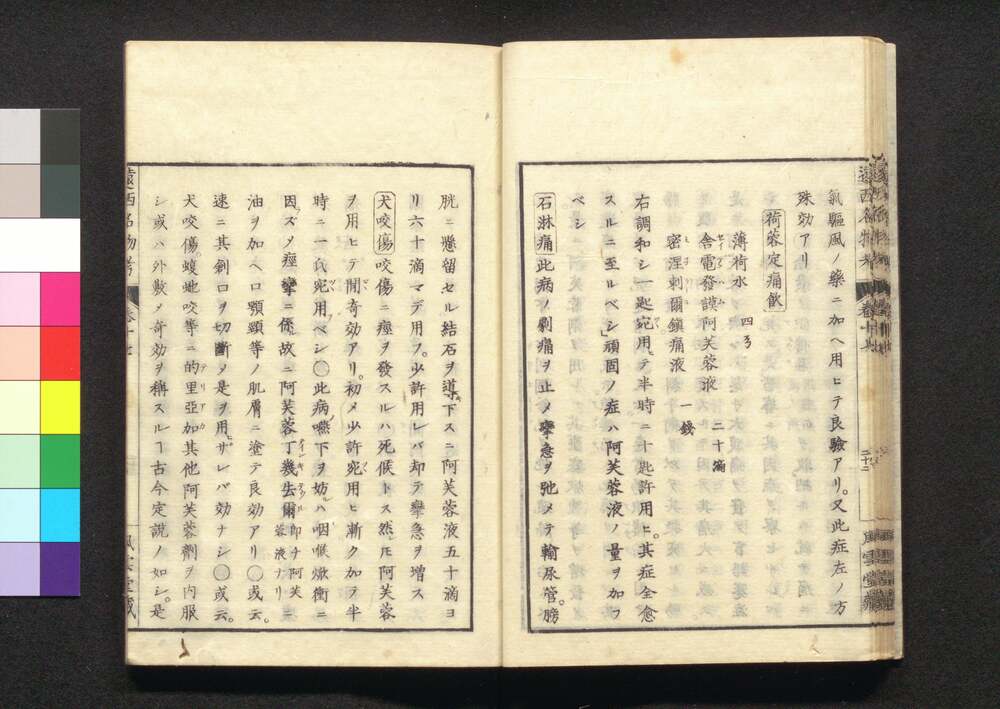 氣驅風ノ藥ニ加ヘ用ヒテ良驗アリ。又此症左ノ方
殊効アリ
荷蓉定痛飲
薄荷水 四ゟ
舎電發謨阿芙蓉液 二十滴
密涅刺爾鎮痛液 一錢
右調和シ一匙宛用テ半時ニ十匙許用ヒ。其症全愈
スルニ至ルベシ」頑固ノ症ハ阿芙蓉液ノ量ヲ加フ
ベシ
石淋痛此病ノ劇痛ヲ止メ攣急ヲ弛メテ輸尿管。膀
遠西名物考
二十二
風雲堂藏
胱ニ懸留セル結石ヲ導下スニ阿芙蓉液五十滴ヨ
リ六十滴マデ用フ。少許用レバ却テ攣急ヲ増ス
犬咬傷咬傷ニ痙ヲ發スルハ死候トス然𪜈阿芙蓉
ヲ用ヒテ間奇効アリ。初メ少許宛用ヒ漸ク加テ半
時ニ一氏宛用ベシ○此病嚥下ヲ妨ハ咽喉焮衝ニ
因ズメ痙攣ニ係故ニ阿芙蓉丁幾去爾即チ阿芙蓉液ナリ
油ヲ加ヘ口顎頸等ノ肌膚ニ塗テ良効アリ○或云。
速ニ其創口ヲ切斷メ是ヲ用ザレバ効ナシ○或云。
犬咬傷。蝮蚍咬等ニ的里亞加其他阿芙蓉劑ヲ内服
シ或ハ外敷メ奇効ヲ稱スルヿ古今定説ノ如シ。是
遠西名物考
卷十七
風雲堂藏